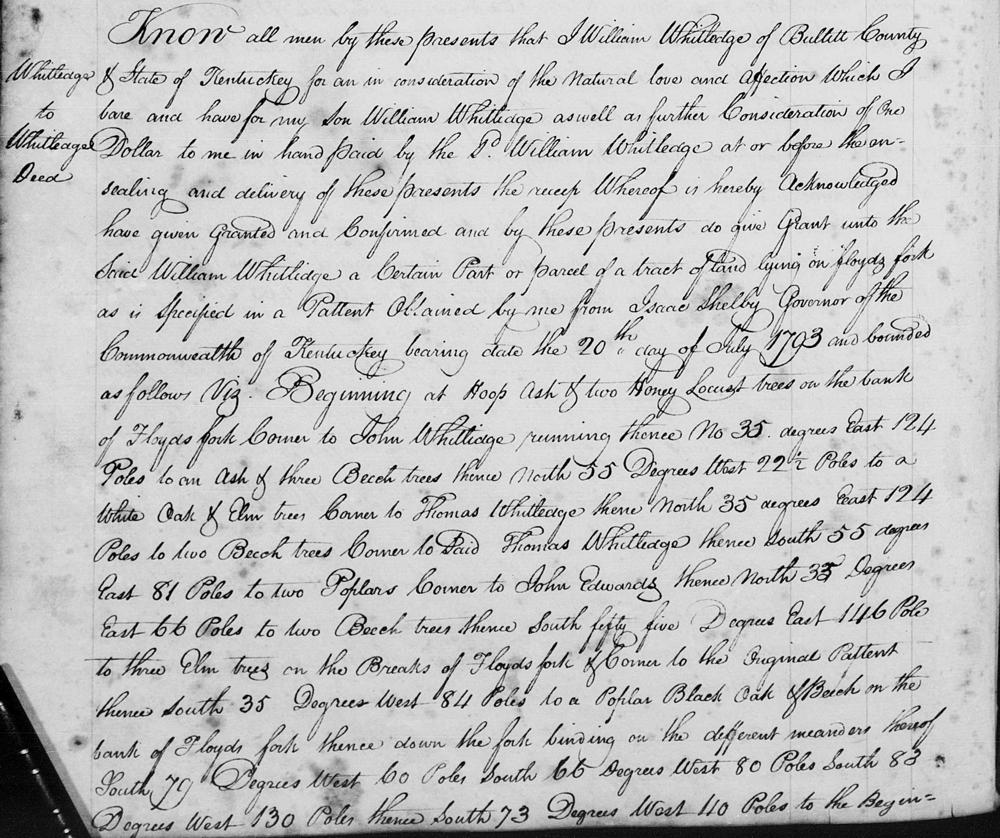 Know all men by these presents that I William Whitledge of Bullitt County
Whitledge
to
Whitledge
Deed
& State of Kentuckey for an in consideration of the Natural love and affection Which I
bare and have for my Son William Whitledge aswell as further Consideration of One
Dollar to me in hand paid by the Sd. William Whitledge at or before the en-
sealing and delivery of these presents the recep Whereof is hereby Acknowledged
have given Granted and Confirmed and by these presents do give Grant unto the
Said William Whitlidge a Certain Part or parcel of a tract of land lying on floyds fork
as is Specified in a Pattent Obtained by me from Isaac Shelby Governor of the
Commonwealth of Kentuckey bearing date the 20th day of July 1793 and bounded
as follows Viz. Beginning at Hoop Ash & two Honey Locust trees on the bank
of Floyds fork Corner to John Whitlidge running thence No 35. degrees East 124
Poles to an Ash & three Beech trees thence North 55 Degrees West 22½ Poles to a
White Oak & Elm trees Corner to Thomas Whitledge thene North 35 degrees East 124
Poles to two Beech trees Corner to Said Thomas Whitledge thence South 55 degrees
East 81 Poles to two Poplars Corner to John Edwards thence North 35 Degrees
East 66 Poles to two Beech trees thence South fifty five Degrees East 146 Pole
to three Elm trees on the Breaks of Floyds fork & Corner to the Original Pattent
thence South 35 Degrees West 84 Poles to a Poplar Black Oak & Beech on the
bank of Floyds fork thence down the fork binding on the different meanders thereof
South 79 Degrees West 60 Poles South 66 Degrees West 80 Poles South 83
Degrees West 130 Poles thence South 73 Degrees West 40 Poles to the Begin=